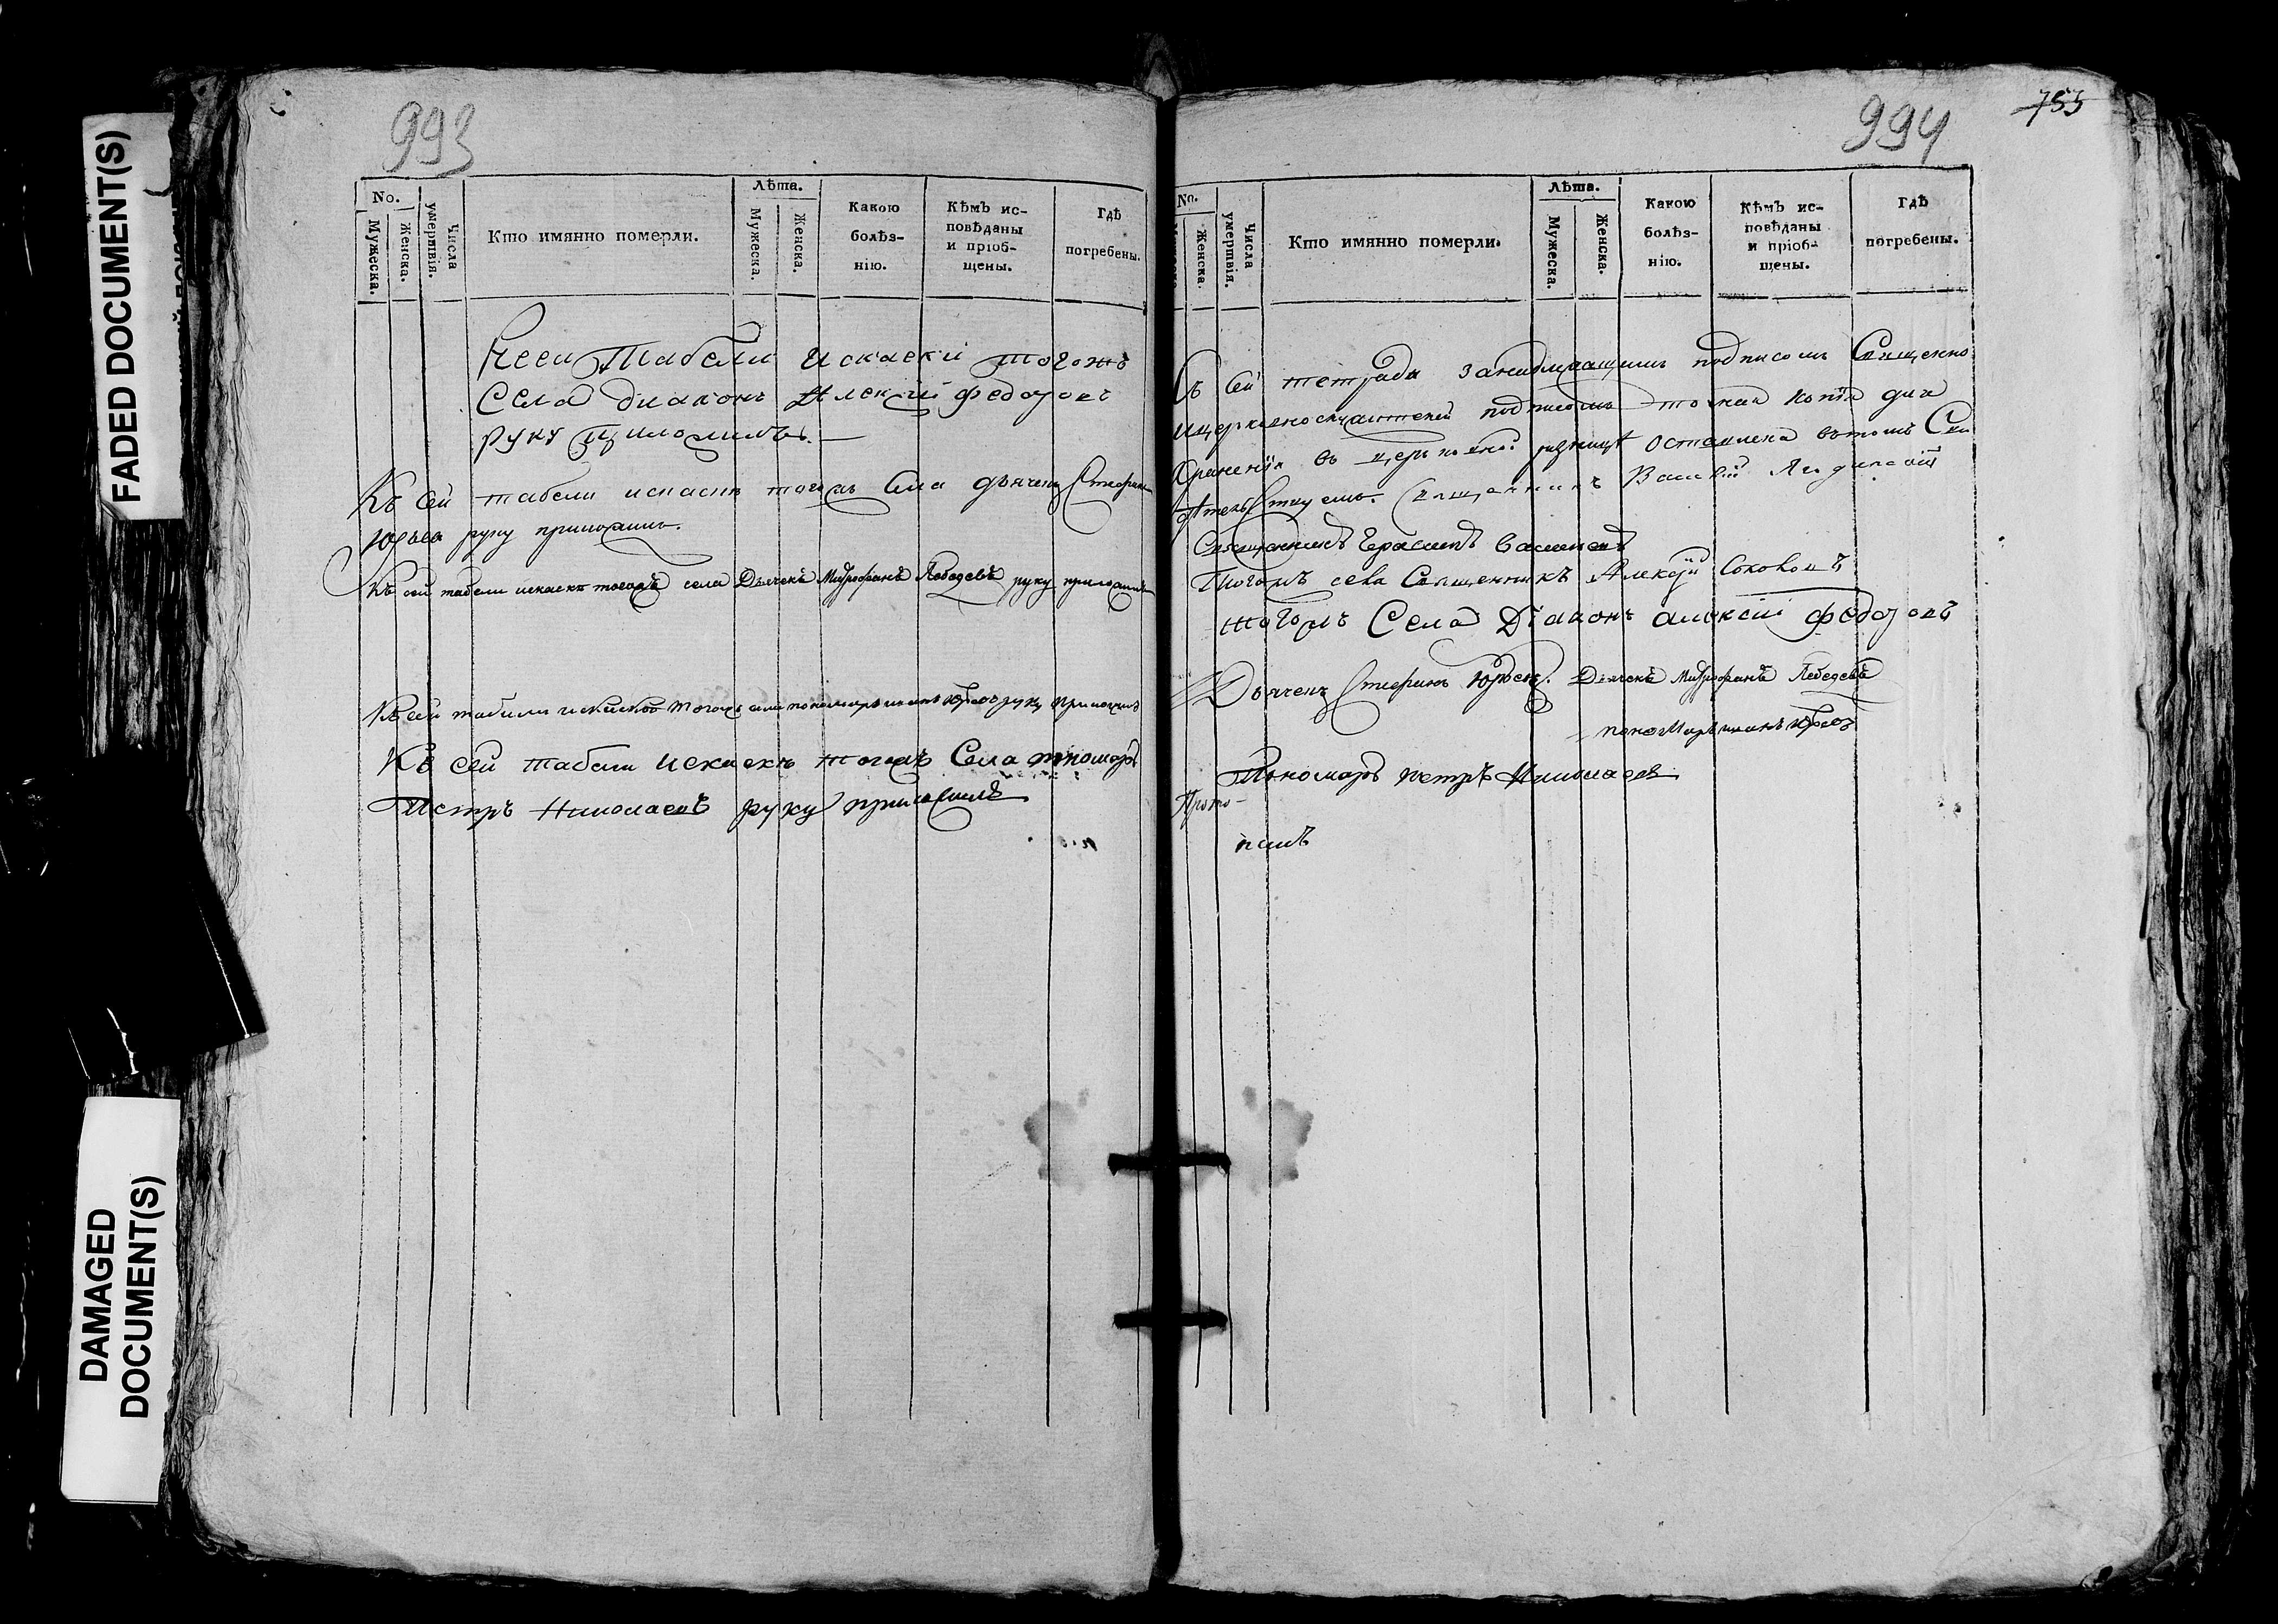 FADED DOCUMENT(S)
DAMAGED
DOCUMENT(S)
993
No.
Мужеска.
Женска.
Числа
умертвія.
Кто имянно померли.
Лѣта.
Мужеска.
Женска.
Какою
болѣз-
нію.
Кѣмъ ис-
повѣданы
и пріоб-
щены.
Гдѣ
погребены.
Ксеи Табели искаски тогожъ
Села диаконъ Алексій федоровъ
руку приложилъ.
Къ сей табели искаски тогожъ Села дьячекъ
Юрьевъ руку приложилъ.
Къ сей табели искаски тогожъ села Дьячекъ Митрофанъ Лебедевъ руку приложилъ
Къ сей табели искаски тогожъ села пономарь иванъ Юрьевъ руку приложилъ
Къ сей табели искаски тогожъ Села пономарь
Петръ Николаевъ руку приложилъ
994
753
No.
Женска.
Числа
умертвія.
Кто имянно померли.
Лѣта.
Мужеска.
Женска.
Какою
болѣз-
нію.
Кѣмъ ис-
повѣданы
и пріоб-
щены.
Гдѣ
погребены.
Съ сей тетради за подписомъ Священно
ицерковнослужителей подписомъ точная копія для
Храненія въ церковной ризницѣ оставлена вътомъ Сви
дѣтельствуемъ. Священникъ Василій
Священникъ Герасимъ Васильевъ
Тогожъ села Священникъ Алексѣй Соколовъ
тогожъ Села Діаконъ алексій федоровъ
Дьячекъ Юрьевъ. Дьячекъ Митрофанъ Лебедевъ
пономарь иванъ Юрьевъ
Пономарь петръ Николаевъ
Прото-
попъ